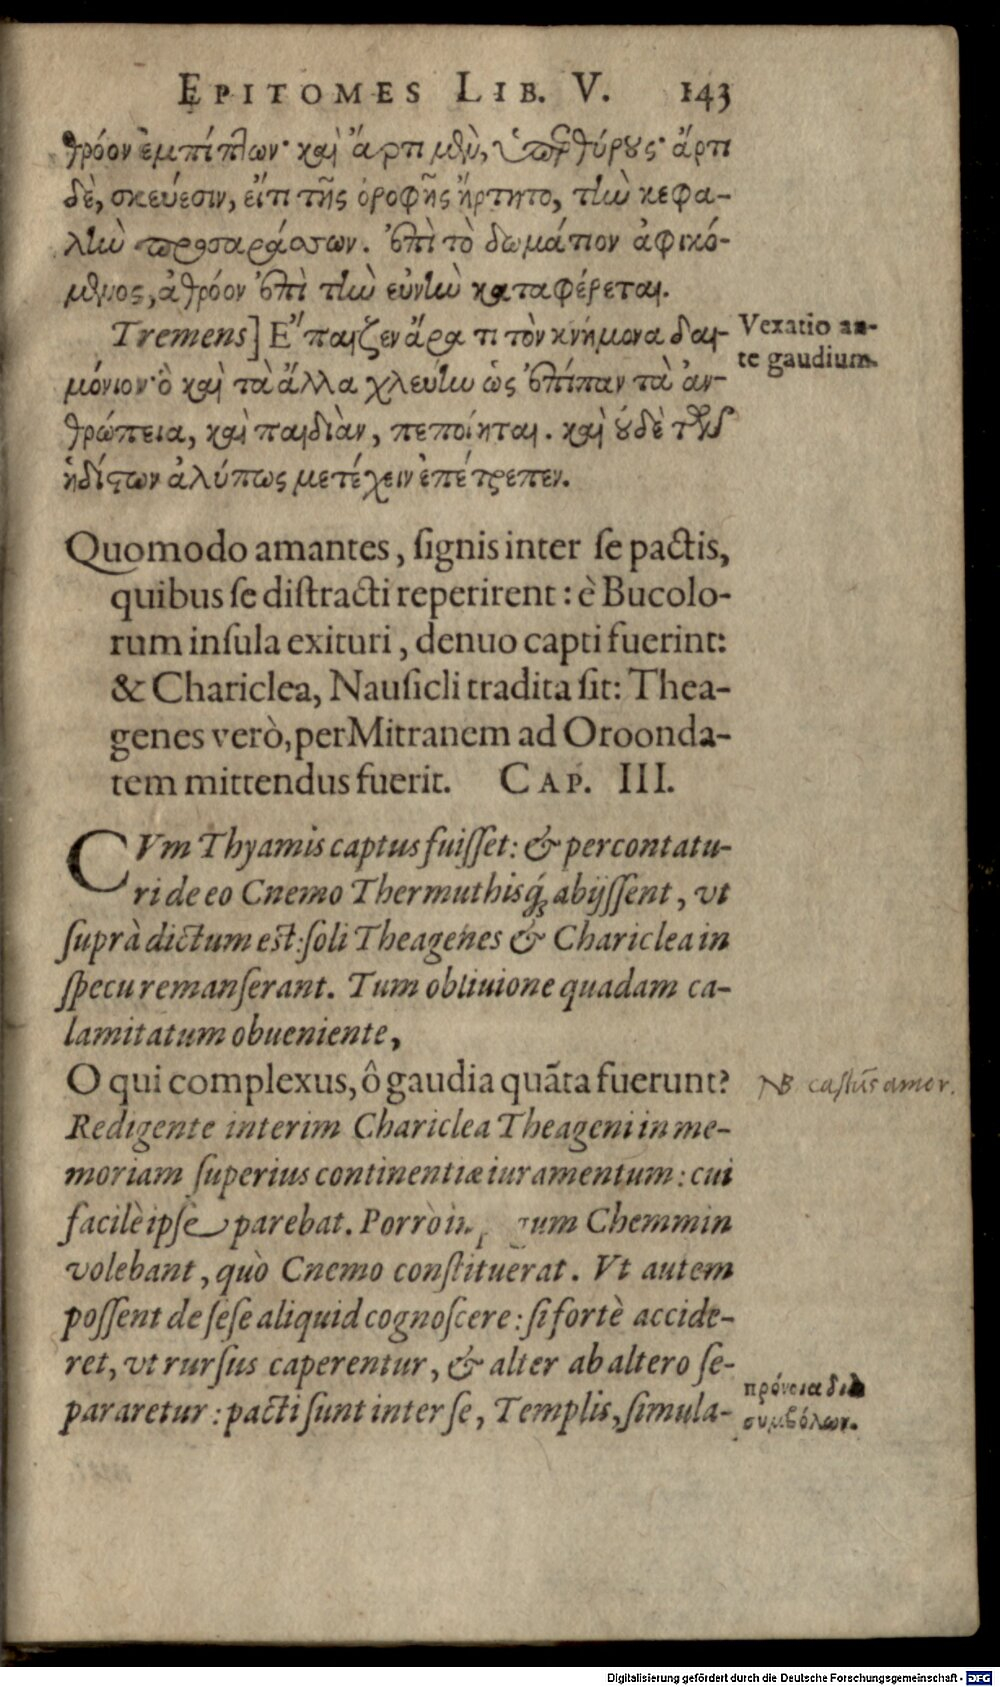 EPITOMES LIB. V. 143
θρόον ἐμπίπλων· καὶ ἄρτι μὲν, ὑπερθύρους· ἄρτι
δὲ, σκεύεσιν, εἴ τι τῆς ὀροφῆς ἤρτητο, τὴν κεφα-
λὴν προσαράσσων. ἐπὶ τὸ δωμάτιον ἀφικό-
μενος, ἀθρόον ἐπὶ τὴν εὐνὴν καταφέρεται.
Tremens] Ἔπαιζεν ἄρα τι τὸν κνήμονα δαι-
Vexatio an-
te gaudium.
μόνιον· ὃ καὶ τὰ ἄλλα χλεύην ὡς ἐπίπαν τὰ ἀν-
θρώπεια, καὶ παιδιὰν, πεποίηται. καὶ οὐδὲ τῶν
ἡδίστων ἀλύπως μετέχειν ἐπέτρεπεν.
Quomodo amantes, ſignis inter ſe pactis,
quibus ſe diſtracti reperirent: è Bucolo-
rum inſula exituri, denuo capti fuerint:
& Chariclea, Nauſicli tradita ſit: Thea-
genes verò, per Mitranem ad Oroonda-
tem mittendus fuerit. CAP. III.
CVm Thyamis captus fuiſſet: & percontatu-
ri de eo Cnemo Thermuthisq́; abijſſent, vt
ſuprà dictum est: ſoli Theagenes & Chariclea in
ſpecu remanſerant. Tum obliuione quadam ca-
lamitatum obueniente,
O qui complexus, ô gaudia quãta fuerunt?
NB castus amor.
Redigente interim Chariclea Theageni in me-
moriam ſuperius continentiæ iuramentum: cui
facilè ipſe parebat. Porrò Chemmin
volebant, quò Cnemo conſtituerat. Vt autem
poſſent de ſeſe aliquid cognoſcere: ſi fortè accide-
ret, vt rurſus caperentur, & alter ab altero ſe-
pararetur: pacti ſunt inter ſe, Templis, ſimula-
πρόνοια διὰ
συμβόλων.
Digitalisierung gefördert durch die Deutsche Forschungsgemeinschaft - DFG